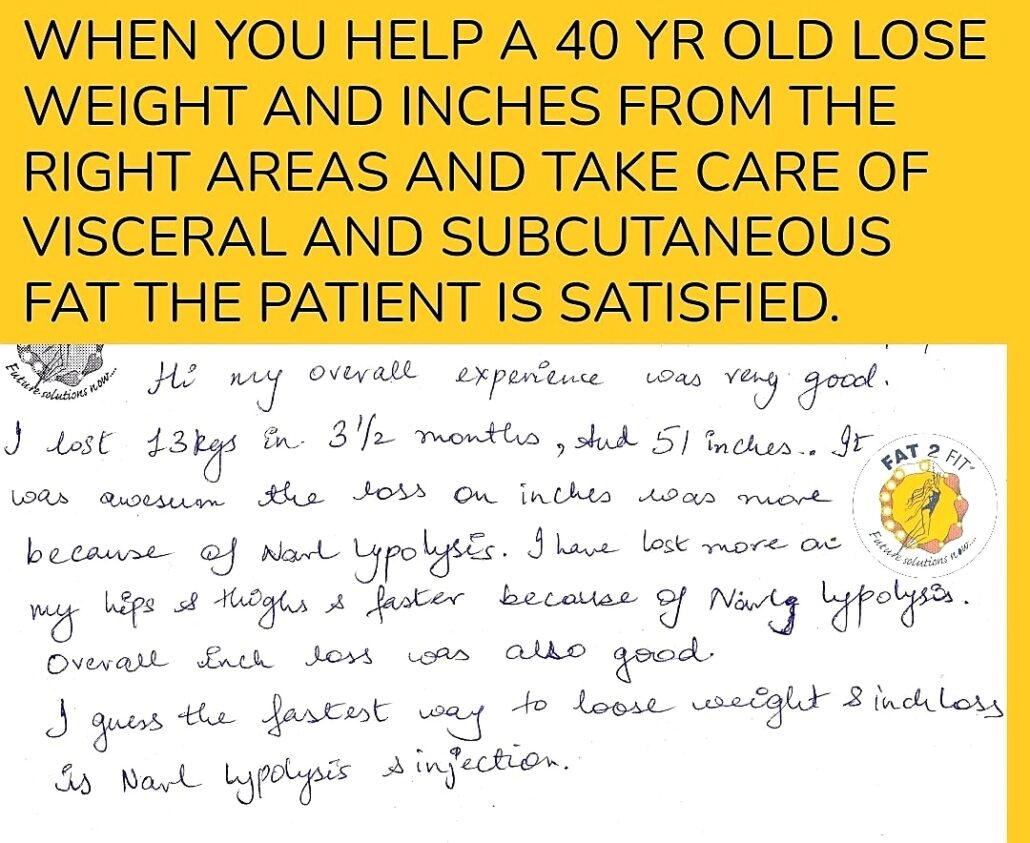 WHEN YOU HELP A 40 YR OLD LOSE
WEIGHT AND INCHES FROM THE
RIGHT AREAS AND TAKE CARE OF
VISCERAL AND SUBCUTANEOUS
FAT THE PATIENT IS SATISFIED.
Future solutions now...
Hi my overall experience was very good.
I lost 13kgs in 3 1/2 months, And 51 inches.. It
FAT 2 FIT
was awesum the loss on inches was more
because of Narl Lypolysis. I have lost more on
Future solutions now...
my hips & thighs & faster because of lypolysis.
Overall Inch loss was also good.
I guess the fastest way to loose weight & inch loss
is Narl Lypolysis & injection.